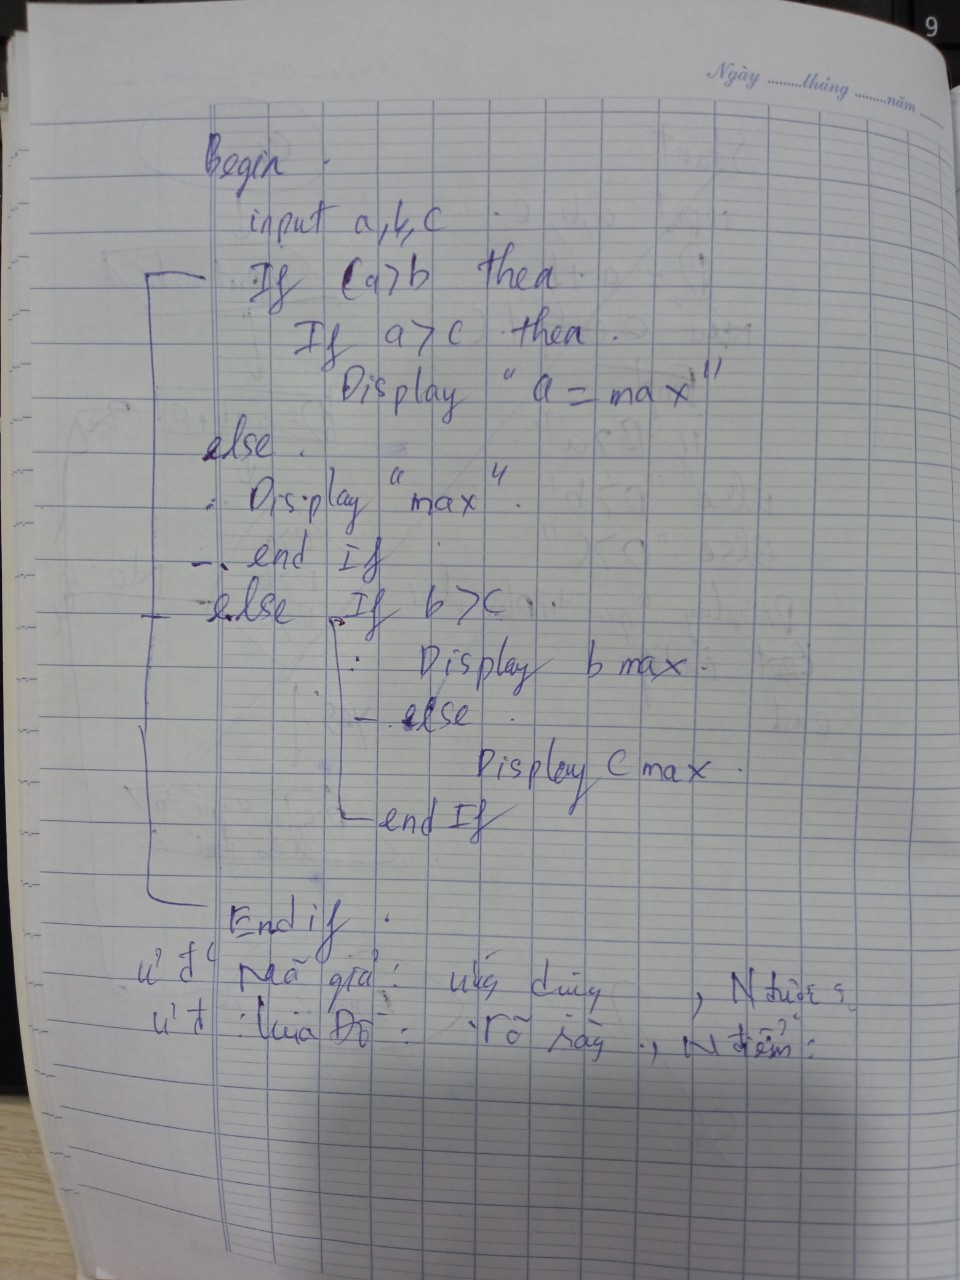 9
Ngày ........tháng ........năm .....
Begin .
input a,b,c
If (a>b then
If a>c then .
Display "a = max"
else .
Display "max" .
end If
else If b>c
Display b max .
- else
Display C max .
end If
End if .
ư' đ' Mã giả : ứng dụng , N
ư' đ : lưu Đồ : rõ ràng , N điểm :